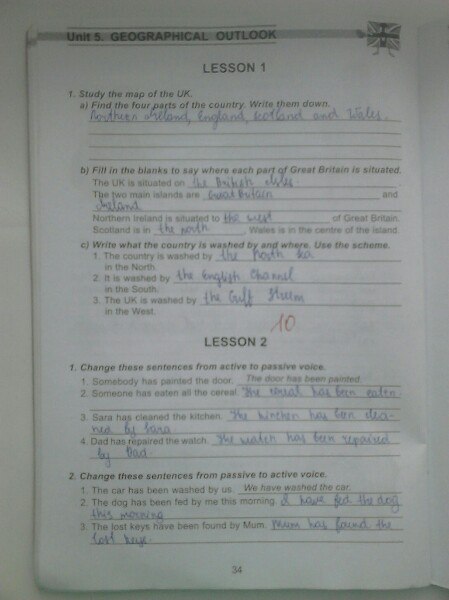 Unit 5. GEOGRAPHICAL OUTLOOK
LESSON 1
1. Study the map of the UK.
a) Find the four parts of the country. Write them down.
Northern Ireland, England, Scotland and Wales.
b) Fill in the blanks to say where each part of Great Britain is situated.
The UK is situated on the British Isles.
The two main islands are Great Britain and
Ireland
Northern Ireland is situated to the west of Great Britain.
Scotland is in the north. Wales is in the centre of the island.
c) Write what the country is washed by and where. Use the scheme.
1. The country is washed by the North Sea
in the North.
2. It is washed by the English Channel
in the South.
3. The UK is washed by the Gulf Stream
in the West.
10
LESSON 2
1. Change these sentences from active to passive voice.
1. Somebody has painted the door. The door has been painted.
2. Someone has eaten all the cereal. The cereal has been eaten
3. Sara has cleaned the kitchen. The kinchen has been clea-
ned by Sara
4. Dad has repaired the watch. The watch has been repaired
by Dad.
2. Change these sentences from passive to active voice.
1. The car has been washed by us. We have washed the car.
2. The dog has been fed by me this morning. I have fed the dog
this morning
3. The lost keys have been found by Mum. Mum has found the
lost keys
34